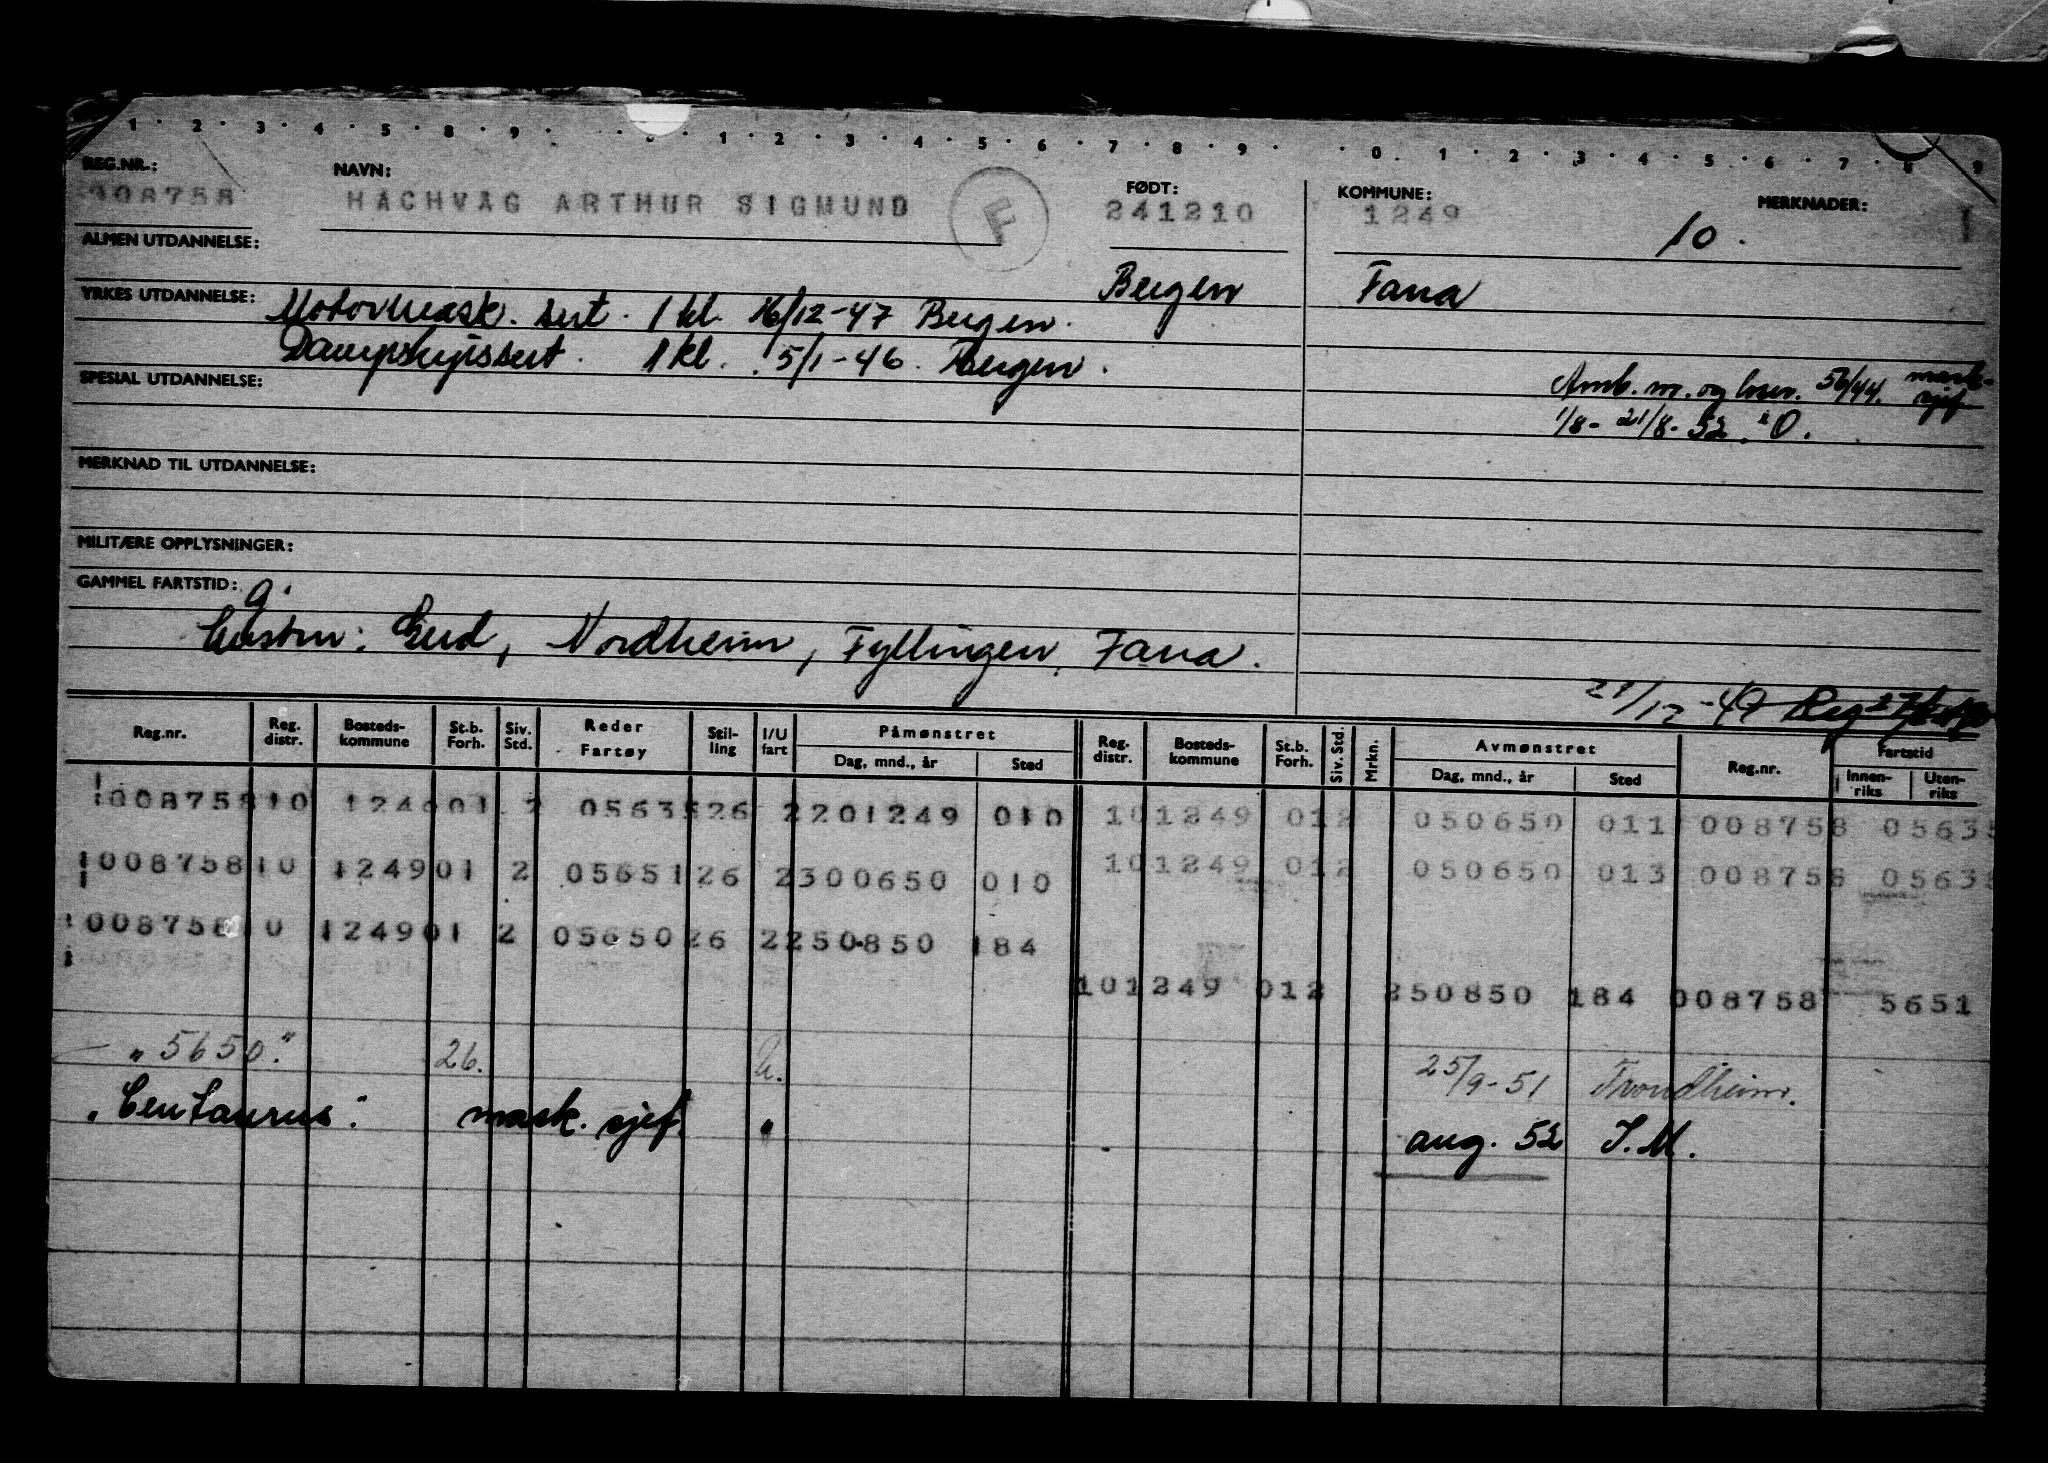 1 · 2 · 3 · 4 · 5 · 8 · 9 · · · 0 · 1 · 2 · 3 · 4 · 5 · 6 · 7 · 8 · 9 · · 0 · 1 · 2 · 3 · 4 · 5 · 6 · 7 · 8 · 9
REG.NR.: NAVN: FØDT: KOMMUNE: MERKNADER:
008758 HACHVAG ARTHUR SIGMUND F 241210 1249 10.
ALMEN UTDANNELSE:
Bergen Fana
YRKES UTDANNELSE: Motormask. sert. 1 kl. 16/12-47 Bergen.
Dampskipssert. 1 kl. 5/1-46 Bergen.
SPESIAL UTDANNELSE:
Amb. m. og insp. 56/44. mask. sjef
1/8 - 21/8 - 52. "O.
MERKNAD TIL UTDANNELSE:
MILITÆRE OPPLYSNINGER:
GAMMEL FARTSTID:
g.
Hustru: Gud, Nordheim, Fyllingen, Fana.
21/12-49 Reg
Reg.nr. Reg. distr. Bosteds-kommune St.b. Forh. Siv. Std. Reder Fartøy Stil-ling I/U fart Påmønstret Dag, mnd., år Sted Reg. distr. Bosteds-kommune St.b. Forh. Siv. Std. Mrkn. Avmønstret Dag, mnd., år Sted Reg.nr. Fartstid Innen-riks Uten-riks
008758 10 1249 01 2 05635 26 2 201249 010 10 1249 01 2 050650 011 008758 05635
008758 10 1249 01 2 05651 26 2 300650 010 10 1249 01 2 050650 013 008758 05635
008758 10 1249 01 2 05650 26 2 250850 184
10 1249 01 2 250850 184 008758 5651
— "5650." 26. U. 25/9-51 Trondheim.
"Centaurus". mask. sjef. " aug. 52 I.M.